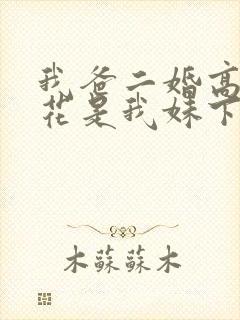 我爸二婚高
花是我妹下
木蘇蘇木